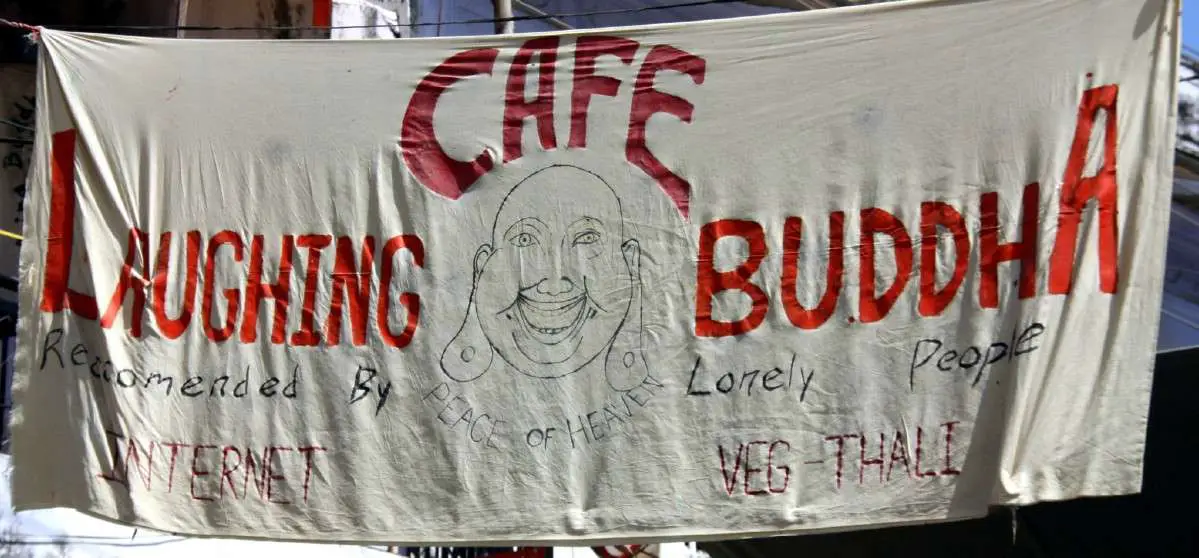 CAFE
LAUGHING BUDDHA
Reccomended By Lonely People
PEACE OF HEAVEN
INTERNET VEG-THALI